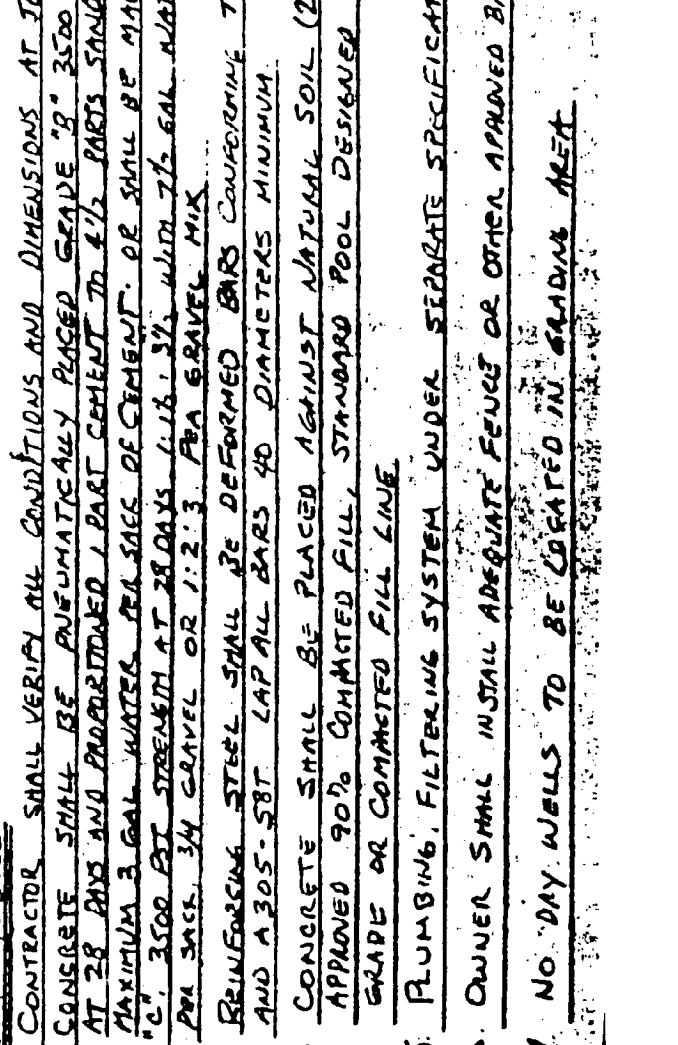 CONTRACTOR SHALL VERIFY ALL CONDITIONS AND DIMENSIONS AT
CONCRETE SHALL BE PNEUMATICALLY PLACED GRADE "B" 3500
AT 28 DAYS AND PROPORTIONED 1 PART CEMENT TO 4 1/2 PARTS SAND
MAXIMUM 3 GAL WATER PER SACK OF CEMENT. OR SHALL BE
"C". 3500 PSI STRENGTH AT 28 DAYS WITH 7 1/2 GAL
PER SACK, 3/4 GRAVEL OR 1:2:3 PEA GRAVEL MIX
REINFORSING STEEL SHALL BE DEFORMED BARS CONFORMING
AND A305-58T LAP ALL BARS 40 DIAMETERS MINIMUM.
CONCRETE SHALL BE PLACED AGAINST NATURAL SOIL (2
APPROVED 90% COMPACTED FILL, STANDARD POOL DESIGNED
GRADE OR COMPACTED FILL LINE
PLUMBING, FILTERING SYSTEM UNDER SEPARATE
OWNER SHALL INSTALL ADEQUATE FENCE OR OTHER APPROVED
NO DRY WELLS TO BE LOCATED IN GRADING AREA